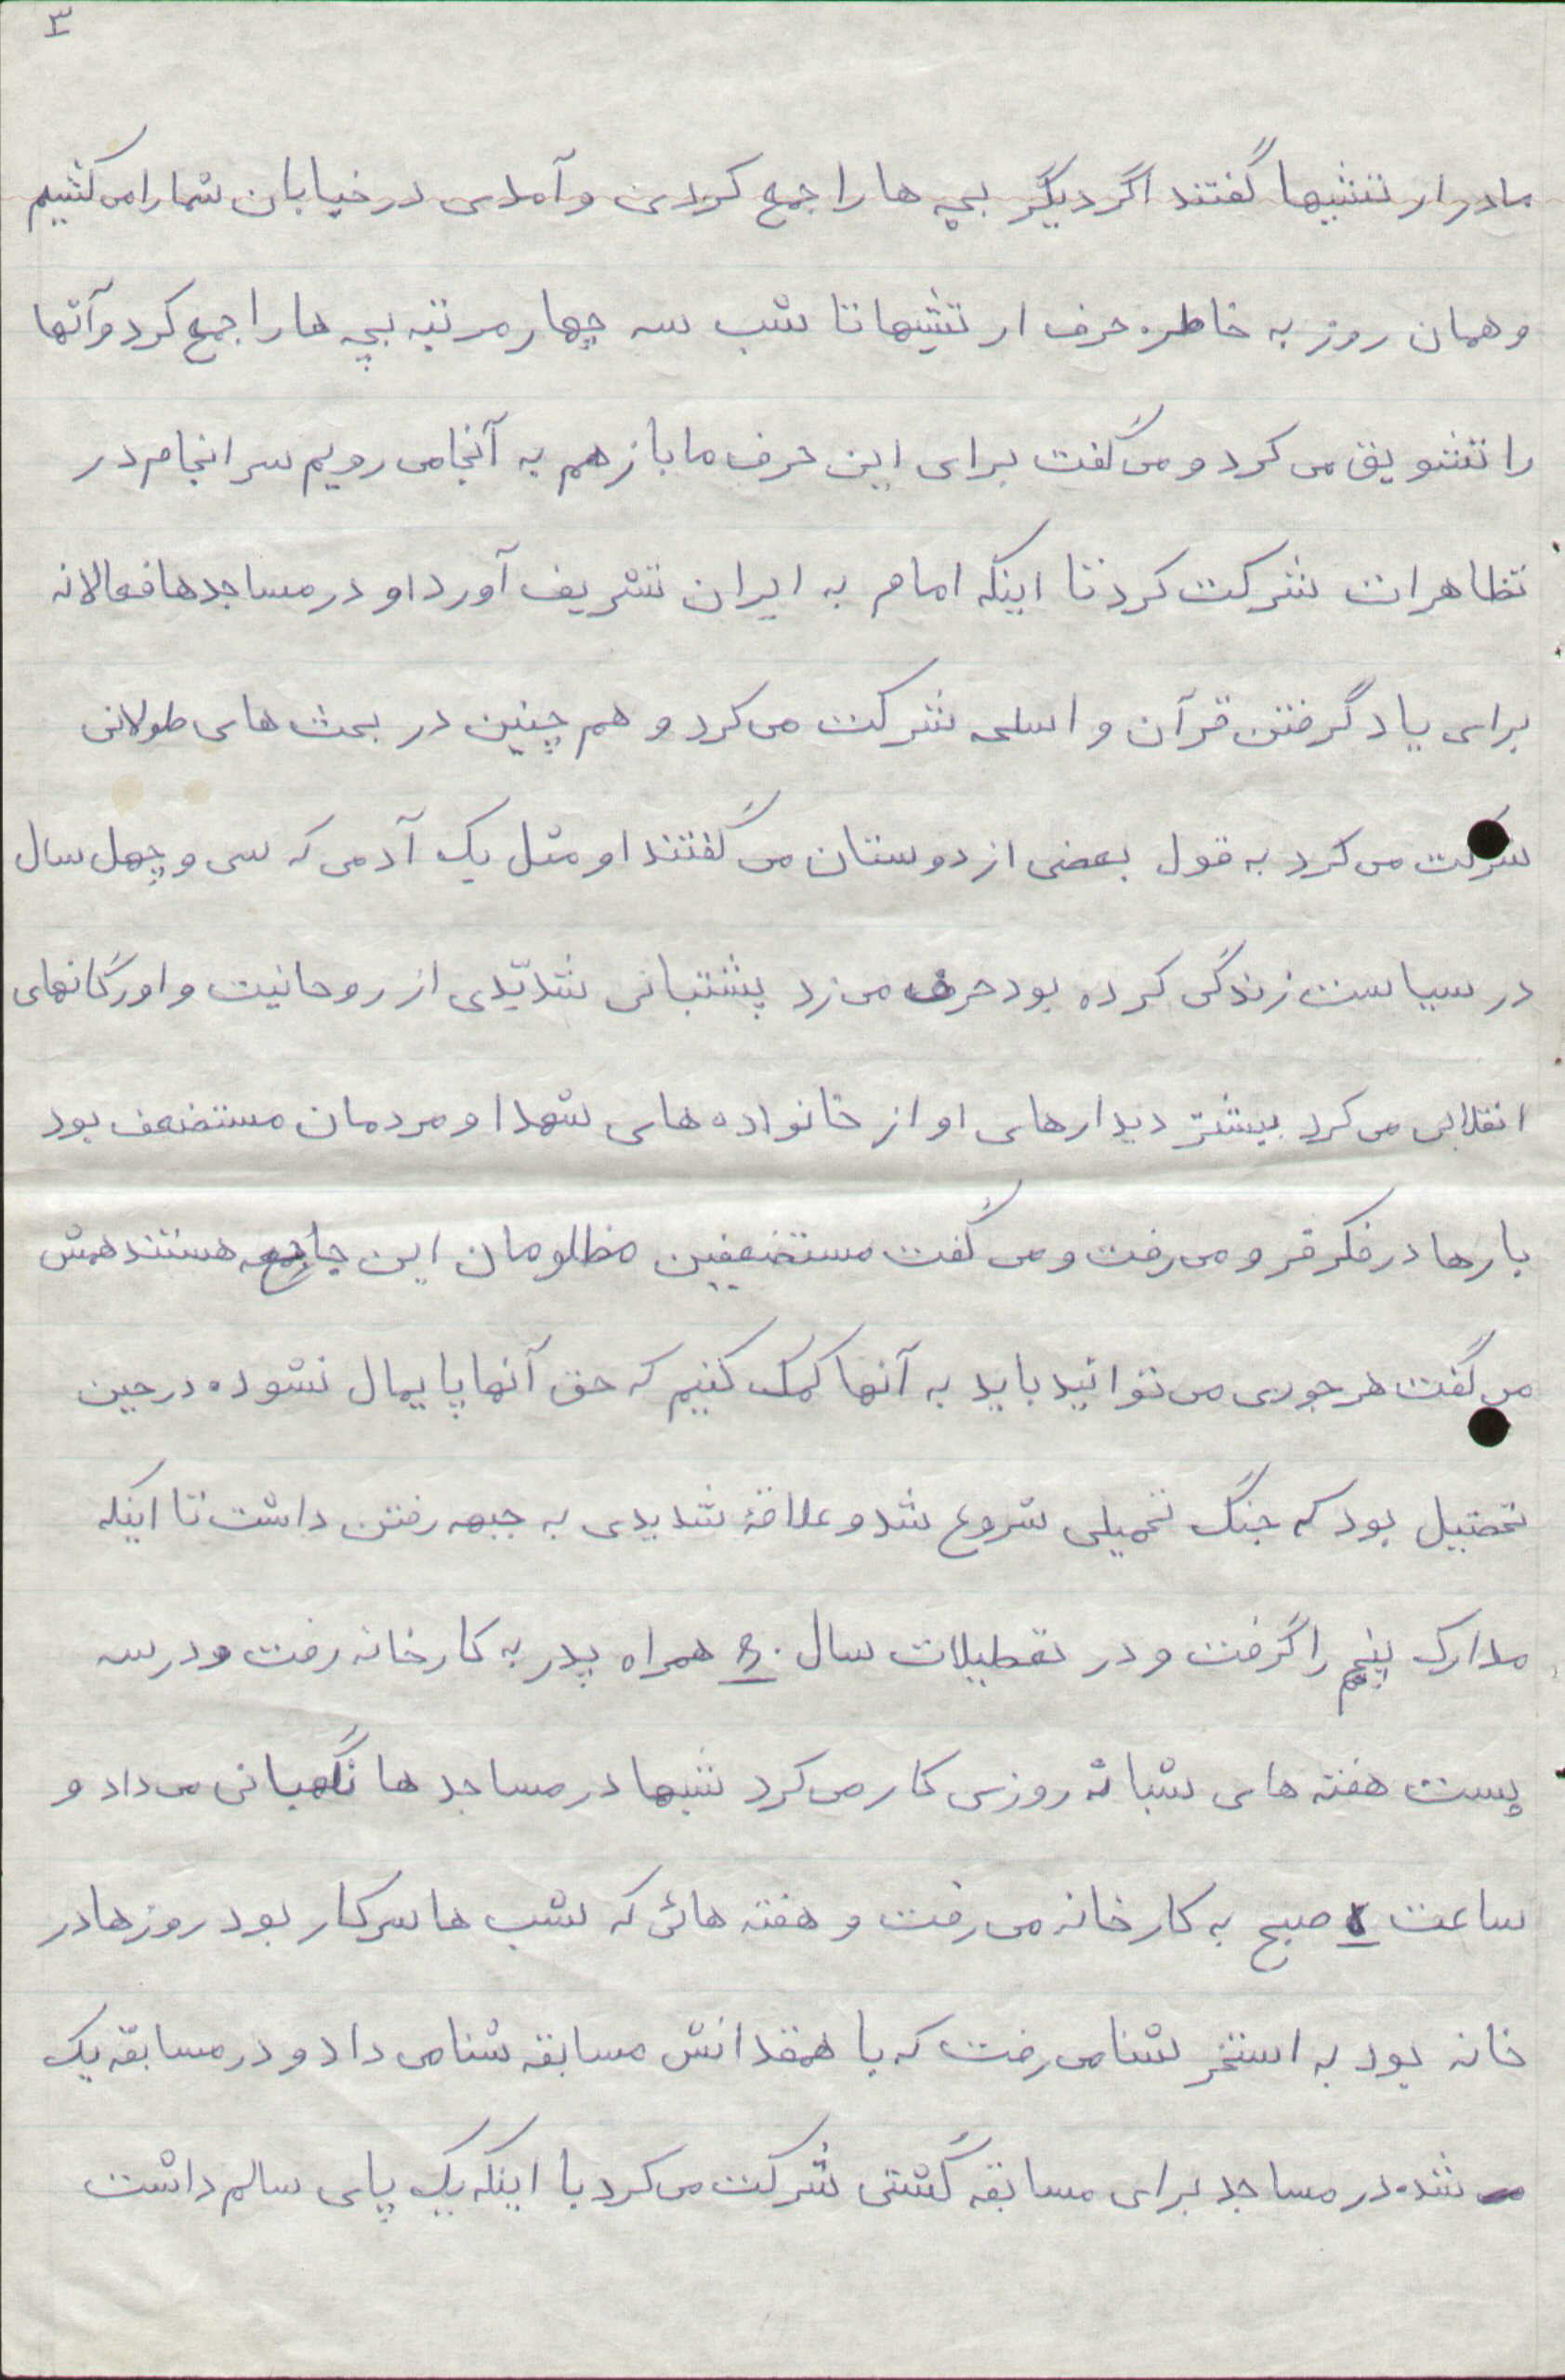 ۳
مادر ارتشیها گفتند اگر دیگر بچه ها را جمع کردی و آمدی در خیابان شما را می کشیم
و همان روز به خاطره حرف ارتشیها تا شب سه چهار مرتبه بچه ها را جمع کرد و آنها
را تشویق می کرد و می گفت برای این حرف ما باز هم به آنجا می رویم سرانجام در
تظاهرات شرکت کرد تا اینکه امام به ایران تشریف آورد او در مساجدها فعالانه
برای یاد گرفتن قرآن و اسلحه شرکت می کرد و هم چنین در بحث های طولانی
شرکت می کرد به قول بعضی از دوستان می گفتند او مثل یک آدمی که سی و چهل سال
در سیاست زندگی کرده بود حرف می زد پشتبانی شدیّدی از روحانیت و اورگانهای
انقلابی می کرد بیشتر دیدارهای او از خانواده های شهدا و مردمان مستضعف بود
بارها در فکر فرو می رفت و می گفت مستضعفین مظلومان این جامعه هستند همش
می گفت هر جوری می توانید باید به آنها کمک کنیم که حق آنها پایمال نشوده در حین
تحصیل بود که جنگ تحمیلی شروع شد و علاقۀ شدیدی به جبهه رفتن داشت تا اینکه
مدارک پنجم را گرفت و در تعطیلات سال ۶۰ همراه پدر به کارخانه رفت و در سه
پست هفته های شبانه روزی کار می کرد شبها در مساجد ها نگهبانی می داد و
ساعت صبح به کارخانه می رفت و هفته هائی که شب ها سر کار بود روزها در
خانه بود به استخر شنا می رفت که با همقدانش مسابقه شنا می داد و در مسابقه یک
شده در مساجد برای مسابقه گشتی شرکت می کرد با اینکه یک پای سالم داشت